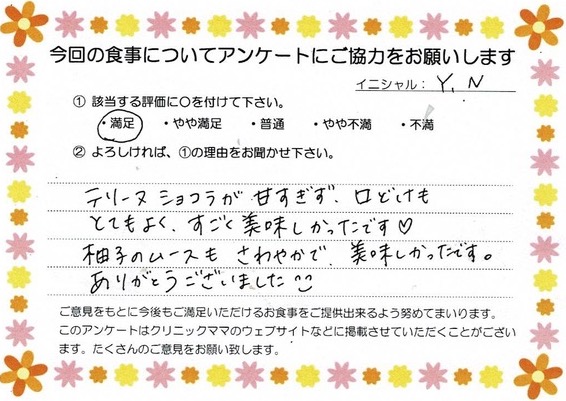 今回の食事についてアンケートにご協力をお願いします
イニシャル： Y, N
① 該当する評価に○を付けて下さい。
・満足 ・やや満足 ・普通 ・やや不満 ・不満
② よろしければ、①の理由をお聞かせ下さい。
テリーヌ ショコラが 甘すぎず、口どけも
とてもよく、すごく美味しかったです♡
柚子のムースも さわやかで、美味しかったです。
ありがとうございました
ご意見をもとに今後もご満足いただけるお食事をご提供出来るよう努めてまいります。
このアンケートはクリニックママのウェブサイトなどに掲載させていただくことがござい
ます。たくさんのご意見をお願い致します。